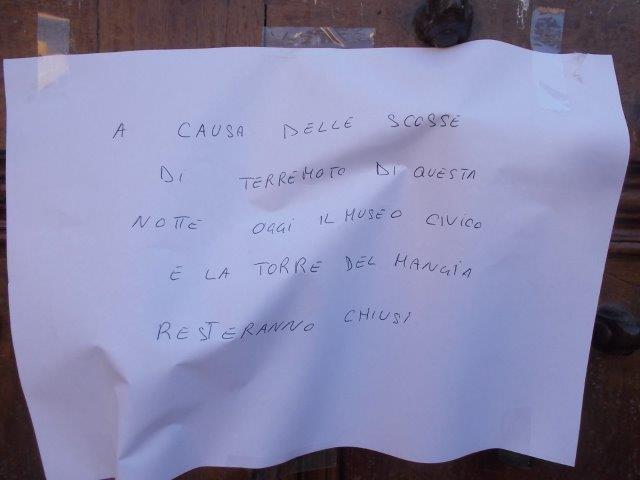 A CAUSA DELLE SCOSSE
DI TERREMOTO DI QUESTA
NOTTE OGGI IL MUSEO CIVICO
E LA TORRE DEL MANGIA
RESTERANNO CHIUSI